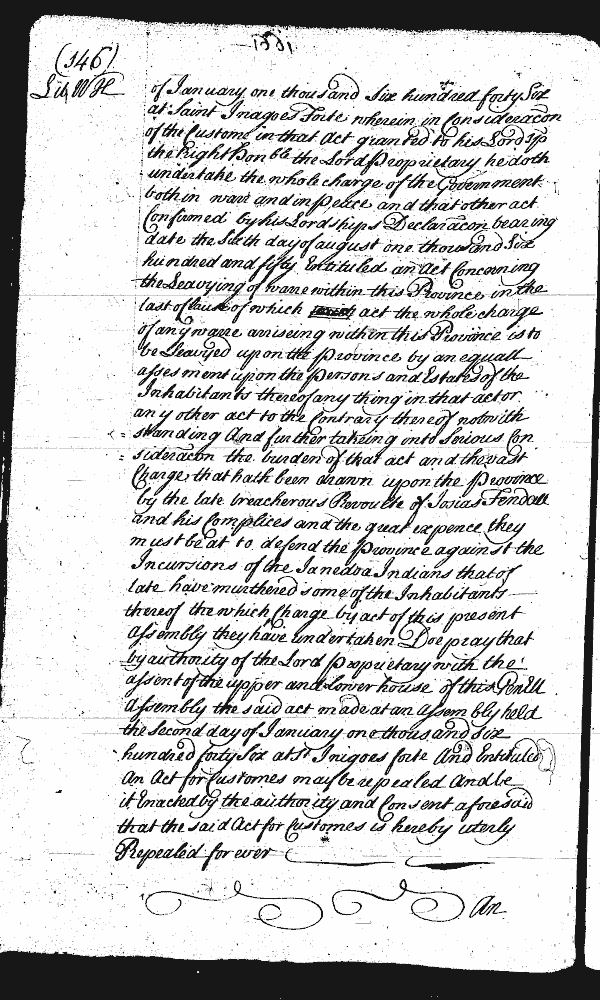 1661
(146)
Lib W H
of January one thousand Six hundred forty Six
at Saint Inagoes Forte wherein in Consideracon
of the Customs in that Act granted to his Lordsp
the Right Hon ble the Lord Proprietary he doth
undertake the whole charge of the Government
both in warr and in peace and that other act
Confirmed by his Lordships Declaracon bearing
date the Sixth day of august one thousand Six
hundred and fifty Entituled an Act Concerning
the Leavying of warre within this Province in the
last Clause of which act the whole charge
of any warre arriseing within this Province is to
be Leavyed upon the Province by an equall
assesment upon the Persons and Estates of the
Inhabitants thereof any thing in that act or
any other act to the Contrary thereof notwith
standing And further takeing into Serious Con
sideracon the burden of that act and the vast
Charge that hath been drawn upon the Province
by the late treacherous Revoulte of Josias Fendall
and his Complices and the great expence they
must be at to defend the Province against the
Incursions of the Janedoa Indians that of
late have murthered some of the Inhabitants
thereof the which Charge by act of this present
Assembly they have undertaken Doe pray that
by authority of the Lord Proprietary with the
assent of the upper and Lower house of this Genll
Assembly the said act made at an Assembly held
the second day of January one thousand six
hundred forty Six at St. Inigoes forte And Entituled
An Act for Customes may be repealed And be
it Enacted by the authority and Consent aforesaid
that the said Act for Customes is hereby uterly
Repealed for ever
An